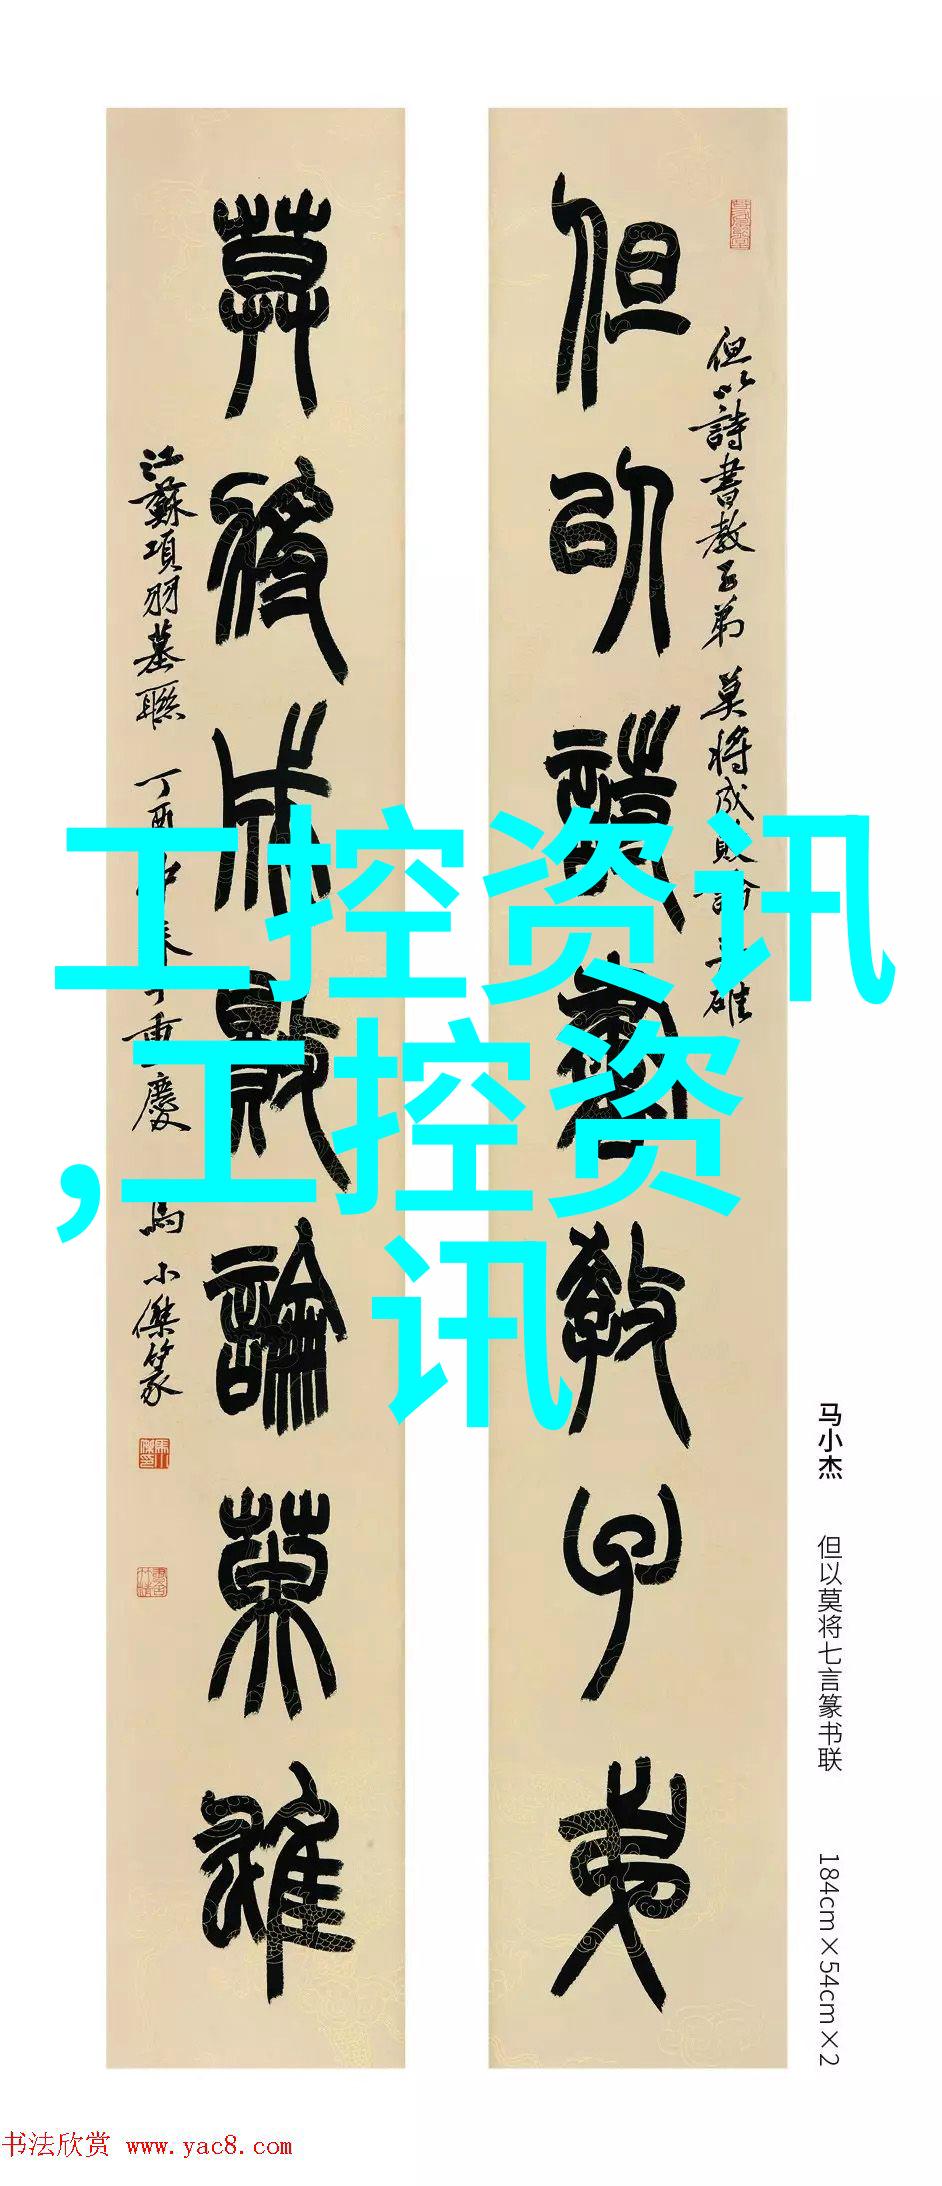 但以詩書教子弟 莫將成敗論英雄
但以詩書教子弟
莫將成敗論英雄
江蘇項羽墓聯 丁酉仲春于重慶 馬小傑篆
工控资讯
,工控资
讯
马小杰 但以莫将七言篆书联 184cm×54cm×2
书法欣赏 www.yac8.com